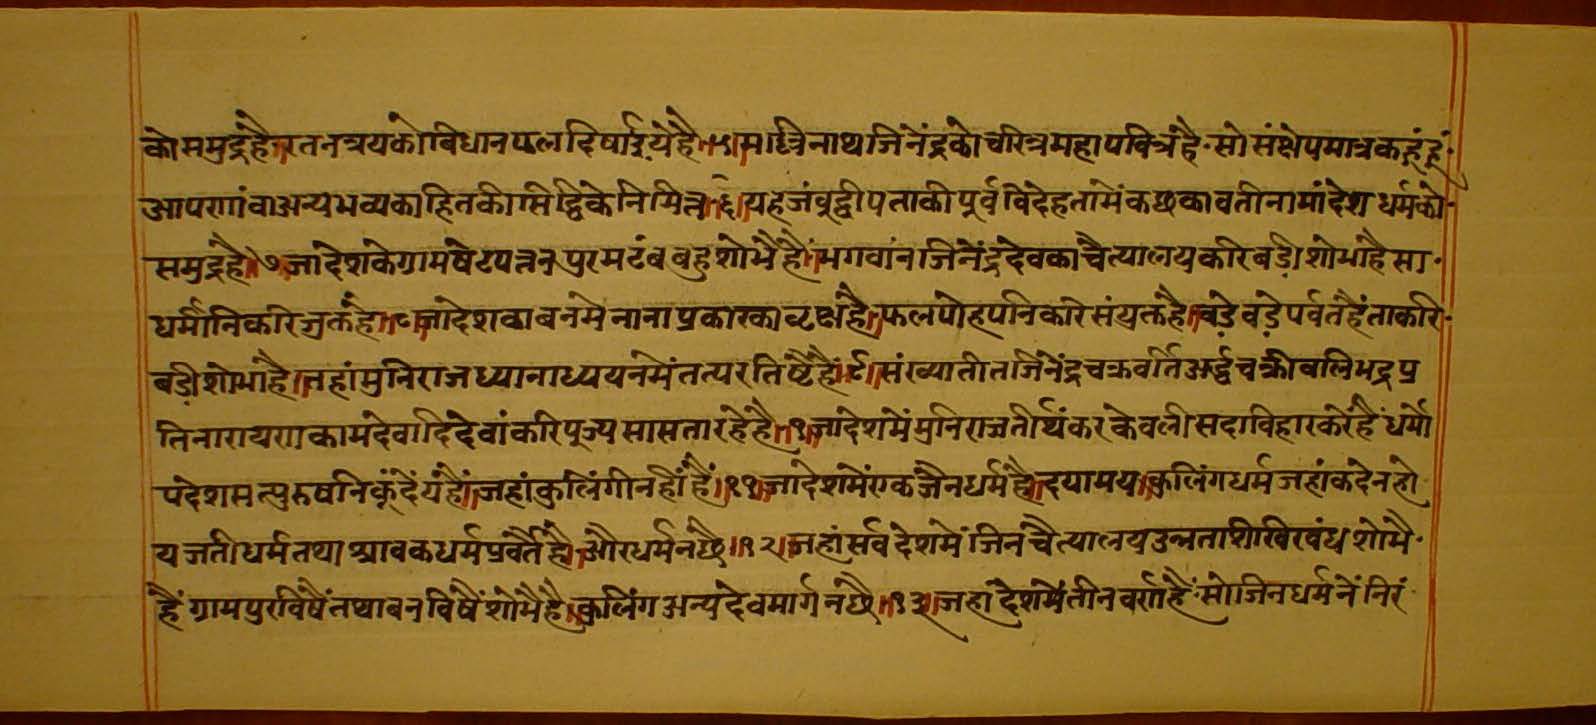 को समुद्र है॥ रतनत्रयको बिधान फल दिषाईये है॥५॥ मल्लिनाथ जिनेंद्रको चरित्र महापवित्र है॰ सो संक्षेपमात्र कहूं हूं॰
आपणां वा अन्य भव्यका हितकी सिद्धिके निमित्त॥६॥ यह जंबूद्वीप ताकी पूर्व विदेह तामें कछकावती नामां देश धर्मको॰
समुद्र है॥७॥ जा देशके ग्राम षेट पत्तन पुर मटंब बहु शोभै है॥ भगवांन जिनेंद्र देवका चैत्यालय करि बड़ी शोभा है सा॰
धर्मीनि करि जुक्त है॥८॥ जा देशका बनमे नाना प्रकारका वृक्ष है॥ फल पोहपनि करि संयुक्त है॥ बड़े बड़े पर्वत हैं ता करि॰
बड़ी शोभा है॥ जहां मुनिराज ध्यानाध्ययनमें तत्पर तिष्ठै है॥९॥ संख्यातीत जिनेंद्र चक्रवर्ति अर्द्धचक्री बलिभद्र प्र
तिनारायण कामदेवादि देवां करि पूज्य सासता रहे है॥१॥ जा देशमें मुनिराज तीर्थंकर केवली सदा विहार करें हैं धर्मो
पदेश सत्पुरुषनिकूं देंय हैं॥ जहां कुलिंगी नहीं हैं॥११॥ जा देशमें एक जैनधर्म है॥ दयामय॥ कुलिंग धर्म जहां कदे न हो
य जती धर्म तथा श्रावक धर्म प्रवर्तै है॥ और धर्म न छै॥१२॥ जहां सर्व देशमें जिन चैत्यालय उन्नता शिखिरबंध शोभै॰
हैं ग्राम पुर विषैं तथा बन विषैं शोभै है॥ कुलिंग अन्यदेव मार्ग न छै॥१३॥ जहां देशमें तीन वर्ण हैं॰ सो जिनधर्मनें निरं